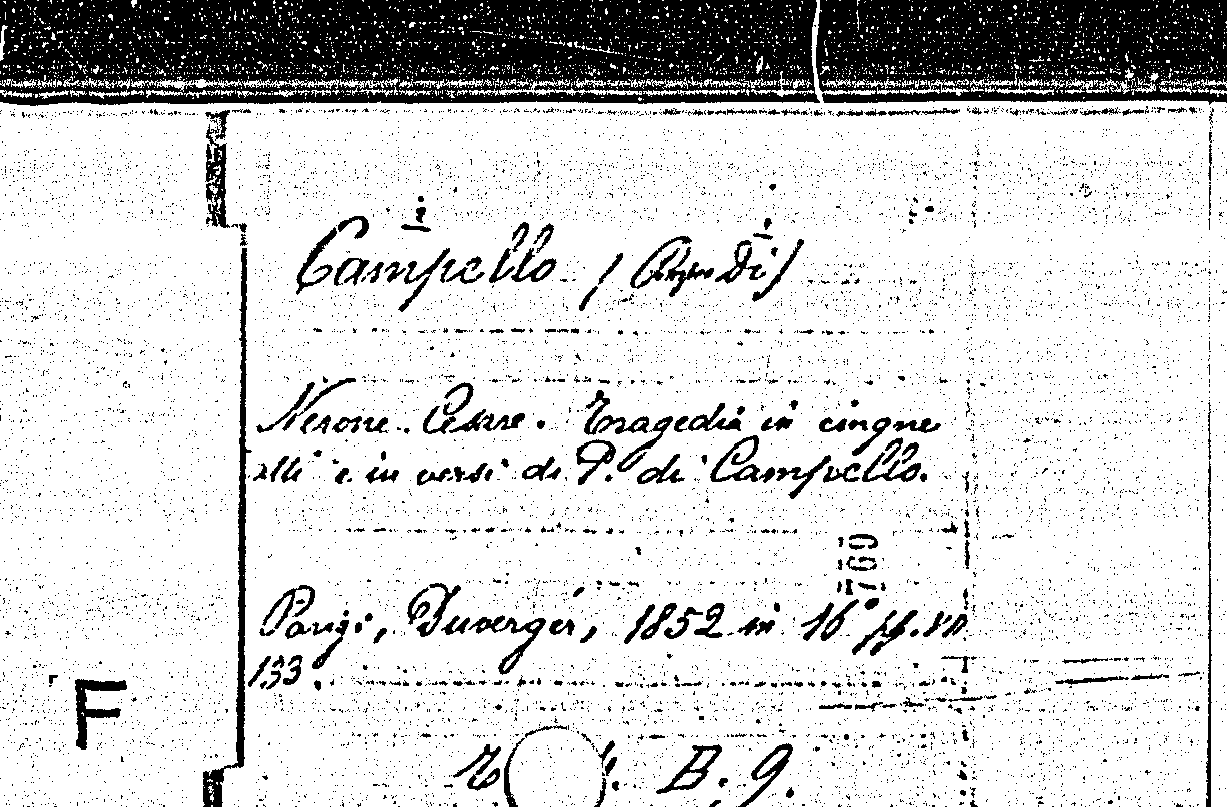 Campello (Pompeo Di)
Nerone Cesare. Tragedia in cinque
atti e in versi di P. di Campello.
769
Parigi, Duverger, 1852 in 16° pp.
133.
F
B. 9.